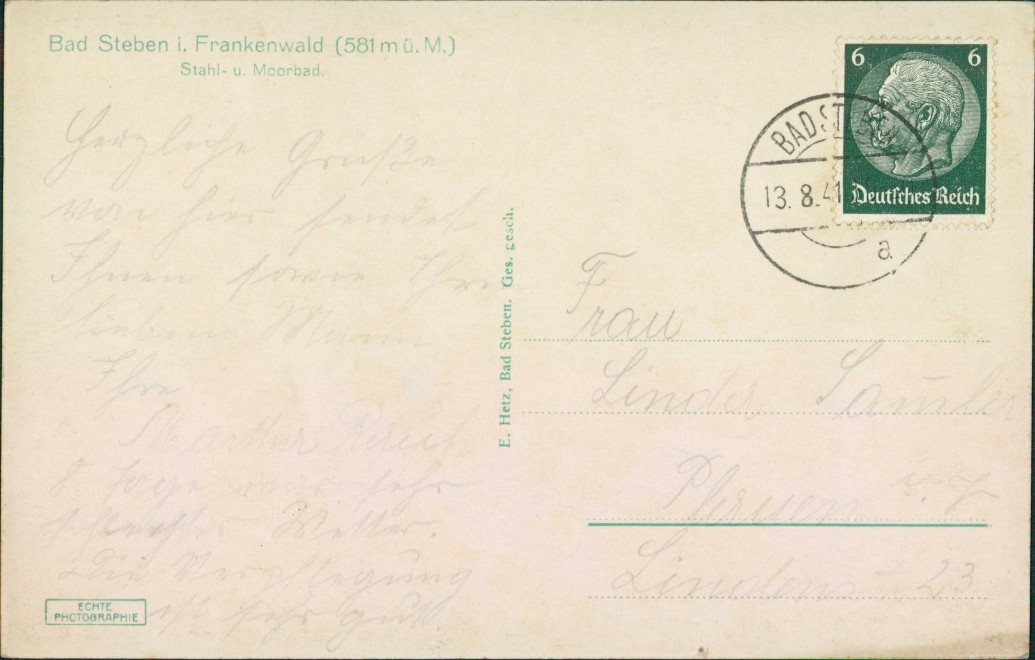 Bad Steben i. Frankenwald (581 m ü. M.)
Stahl- u. Moorbad.
Herzliche Grüße
von hier sendet
Ihnen sowie Ihren
lieben Mann
Ihre
8 Tage war sehr
schlechtes Wetter.
Die Verpflegung
ist sehr gut.
ECHTE
PHOTOGRAPHIE
E. Hetz, Bad Steben. Ges. gesch.
6 6
Deutsches Reich
BAD STEBEN
13. 8. 41
a
Frau
Plauen i. V.
Lindenstr. 23